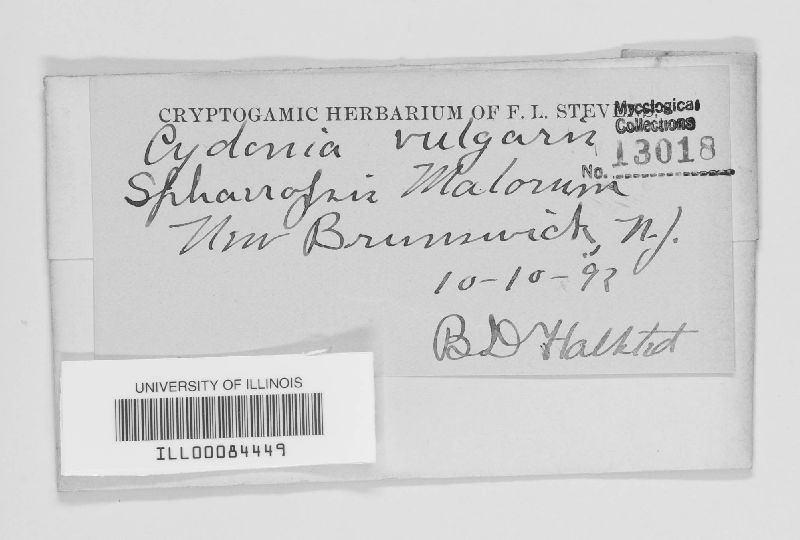 CRYPTOGAMIC HERBARIUM OF F. L. STEVENS.
Mycological
Collections
No. 13018
Cydonia vulgaris
Sphaeropsis Malorum
New Brunswick, N.J.
10-10-92
B D Halsted
UNIVERSITY OF ILLINOIS
ILL00084449